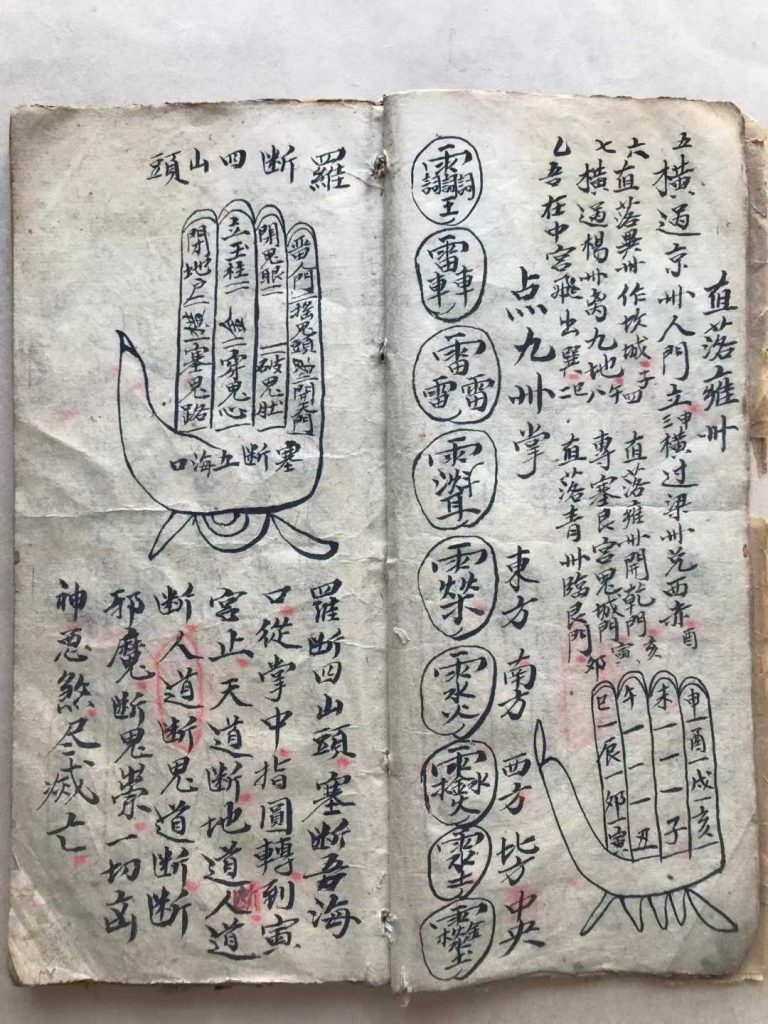 直落雍卅
五橫過京卅人門立三申橫过梁卅兑西赤酉
六直落異卅作坎城子四直落雍卅開乾門亥
七橫過楊卅离九地午八專塞艮宮鬼城門寅
乙吾在中宮飛出巽二巳直落青卅臨艮門夘
点九卅掌
東方 南方 西方 北方 中央
申酉戍亥
未子
午丑
巳辰夘寅
羅断四山頭
雷門 搖鬼頭 開天門
閉鬼眼 破鬼肚
立玉柱 穿鬼心
閉地户 塞鬼路
塞断五海口
羅断四山頭塞断吾海
口從掌中指圓轉到寅
宮止天道断地道人道
断人道断鬼道断断
邪魔断鬼祟一切凶
神惡煞尽滅亡